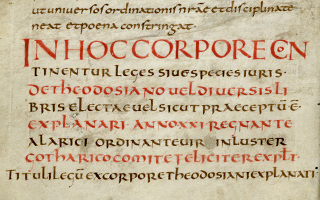 ut universos ordinationis nr̄ae et disciplinate
neat et poena constringat·
IN HOC CORPORE CON
TINENTUR LEGES SIVE SPECIES IURIS·
DE THEODOSIANO VEL DIVERSIS LI
BRIS ELECTAE VEL SICUT PRAECEPTŪ Ē
EXPLANARI· ANNO XXI REGNANTE
ALARICI ORDINANTE VIR INLUSTER
GOTHARICO COMITE FELICITER EXPLT·
TITULI LEGŪ EX CORPORE THEODOSIANI EXPLANATI·